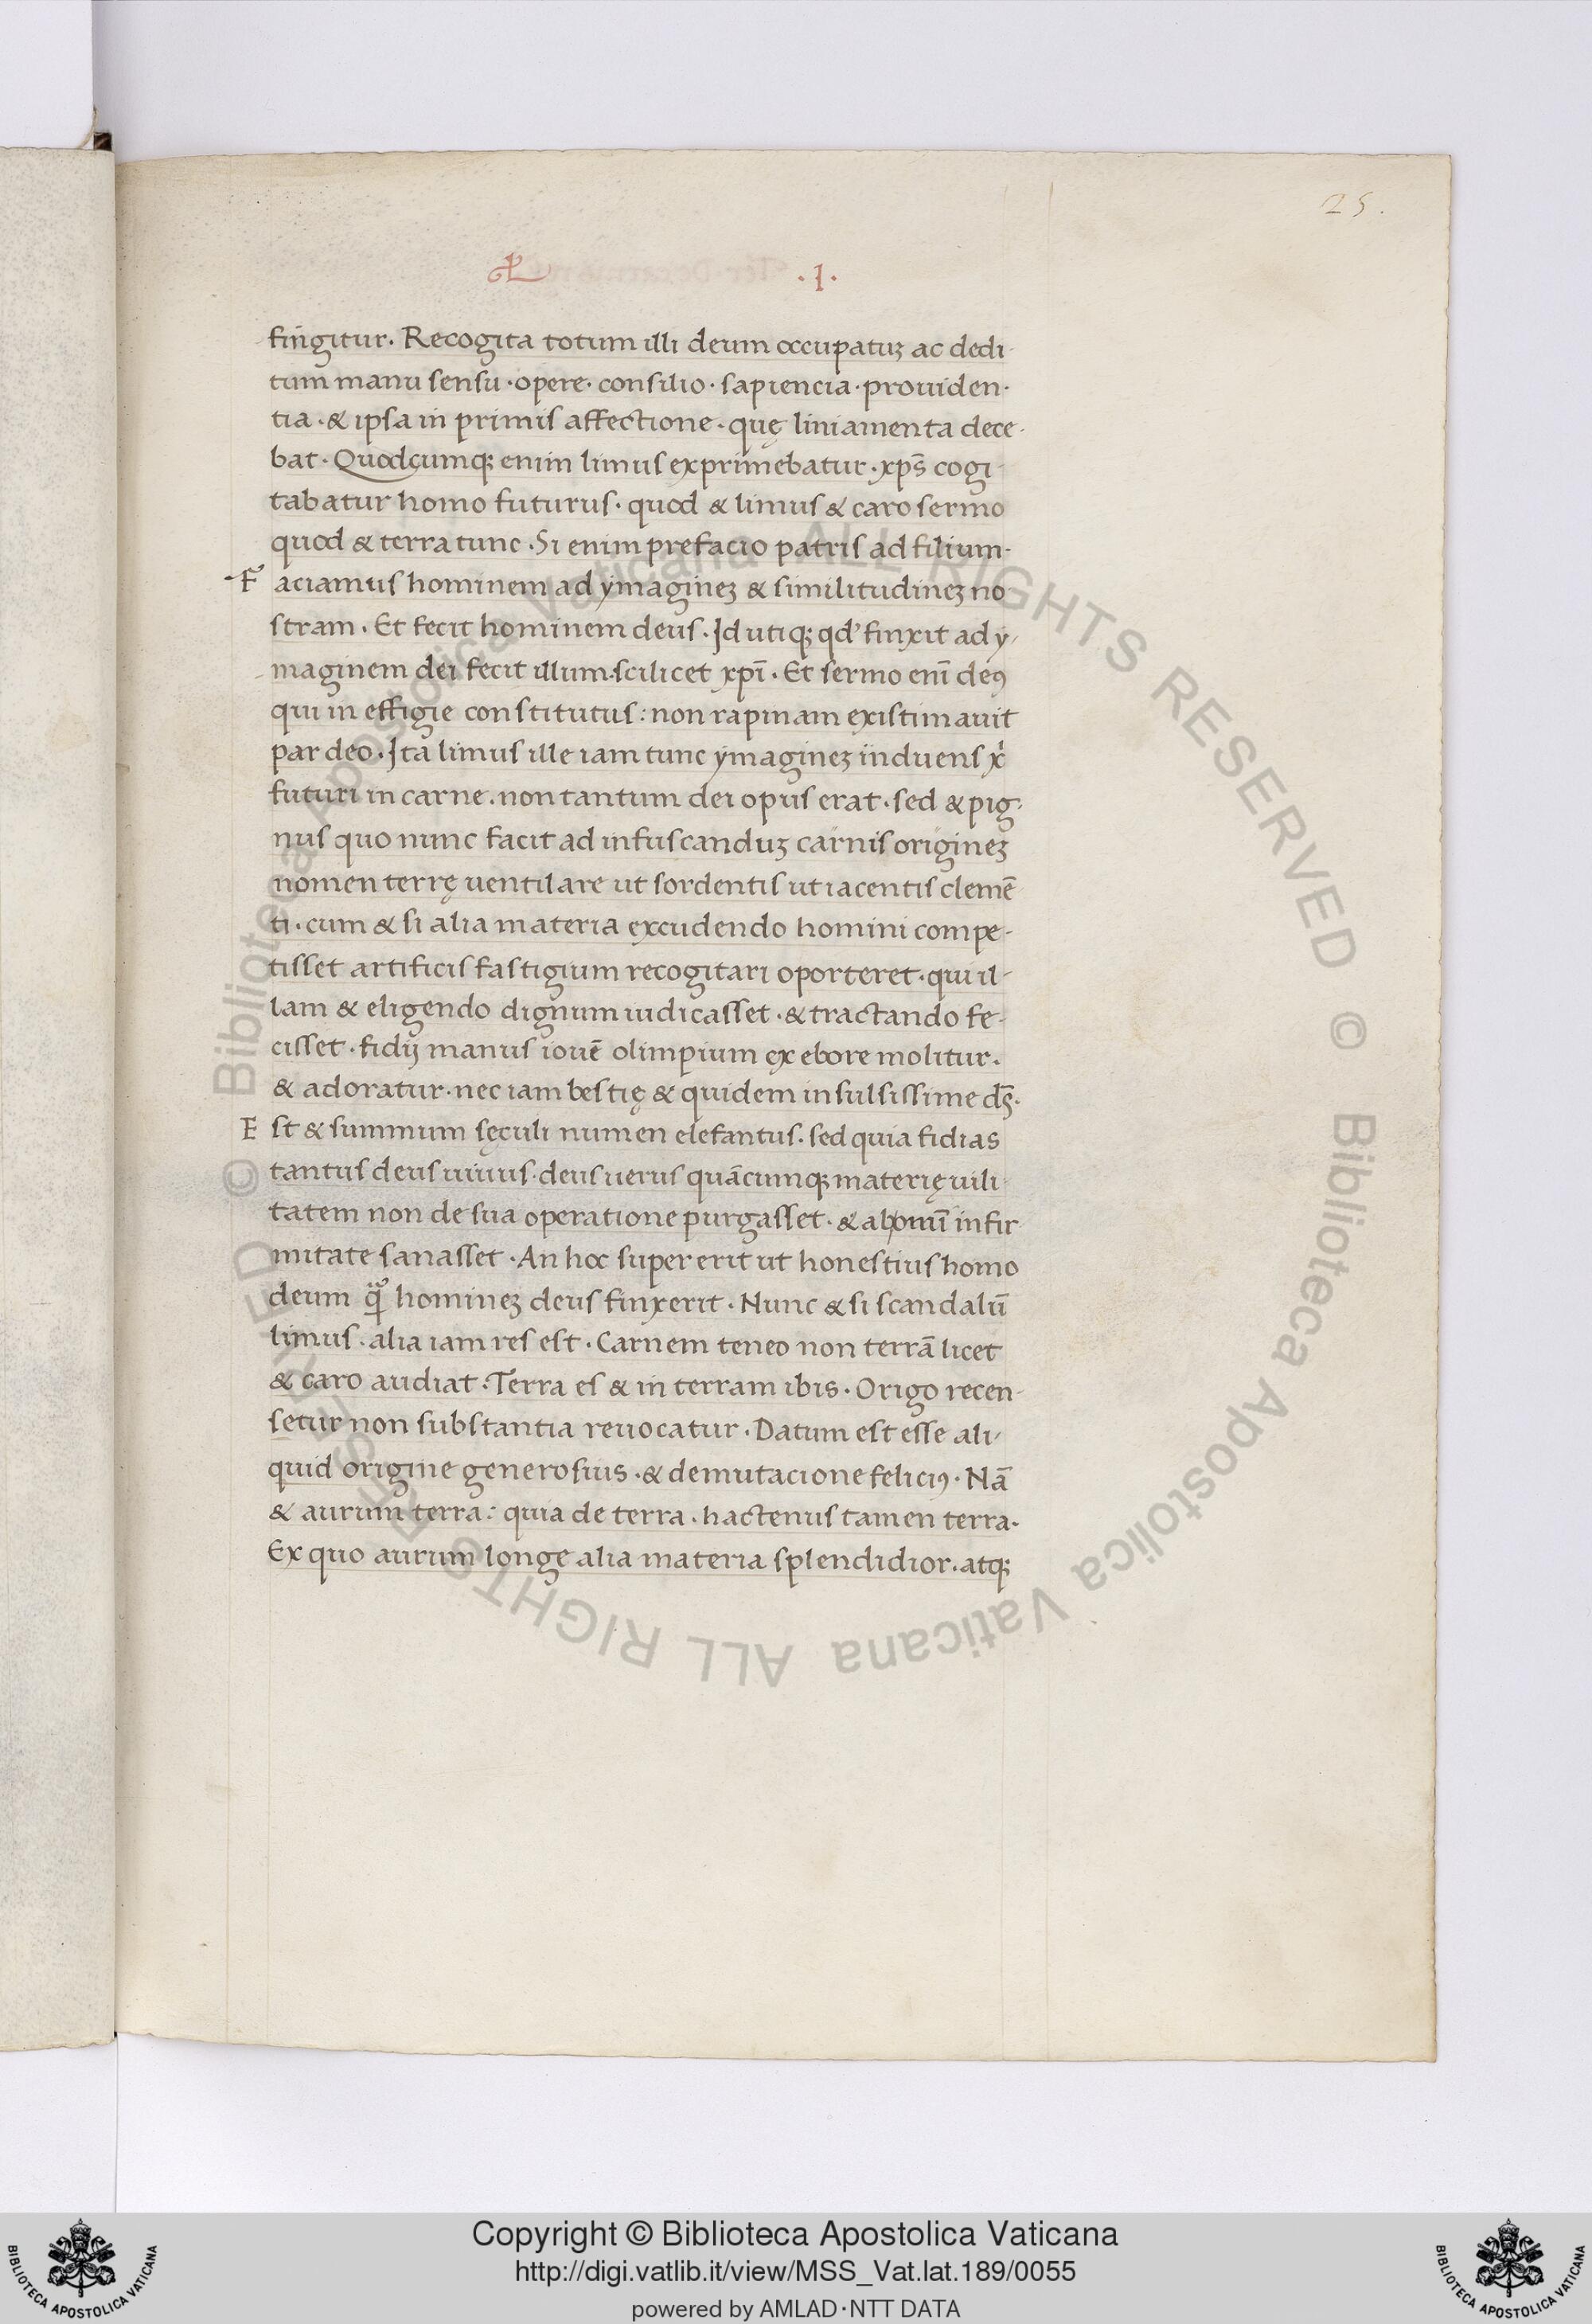 25.
.I.
fingitur. Recogita totum illi deum occupatuʒ ac dedi-
tum manu sensu · opere · consilio · sapiencia · prouiden-
tia · & ipsa in primis affectione · quę liniamenta dece-
bat · Quodcumqʒ enim limus exprimebatur · xp̄s cogi-
tabatur homo futurus · quod & limus & caro sermo
quod & terra tunc · Si enim prefacio patris ad filium ·
F aciamus hominem ad ymagineʒ & similitudineʒ no
stram · Et fecit hominem deus · Id utiqʒ qd' finxit ad y-
maginem dei fecit illum · scilicet xpī · Et sermo enī deꝰ
qui in effigie constitutus : non rapinam existimauit
par deo · Ita limus ille iam tunc ymagineʒ induens xi
futuri in carne · non tantum dei opus erat · sed & pig-
nus quo nunc facit ad infuscanduʒ carnis origineʒ
nomen terrę uentilare ut sordentis ut iacentis clemē
ti · cum & si alia materia excudendo homini compe-
tisset artificis fastigium recogitari oporteret · qui il-
lam & eligendo dignum iudicasset · & tractando fe-
cisset · fidij manus iouē olimpium ex ebore molitur ·
& adoratur · nec iam bestię & quidem insulsissime ds̄ ·
E st & summum sęculi numen elefantus · sed quia fidias
tantus deus uiuus · deus uerus quācumqʒ materię uili
tatem non de sua operatione purgasset · & ab omī infir
mitate sanasset · An hoc super erit ut honestius homo
deum qͣ̃ homineʒ deus finxerit · Nunc & si scandalū
limus · alia iam res est · Carnem teneo non terrā licet
& caro audiat · Terra es & in terram ibis · Origo recen-
setur non substantia reuocatur · Datum est esse ali-
quid origine generosius · & demutacione feliciꝰ · Nā
& aurum terra : quia de terra · hactenus tamen terra ·
Ex quo aurum longe alia materia splendidior · atqʒ
© Biblioteca Apostolica Vaticana ALL RIGHTS RESERVED © Biblioteca Apostolica Vaticana ALL RIGHTS RESERVED
Copyright © Biblioteca Apostolica Vaticana
http://digi.vatlib.it/view/MSS_Vat.lat.189/0055
powered by AMLAD·NTT DATA
BIBLIOTECA APOSTOLICA VATICANA
BIBLIOTECA APOSTOLICA VATICANA